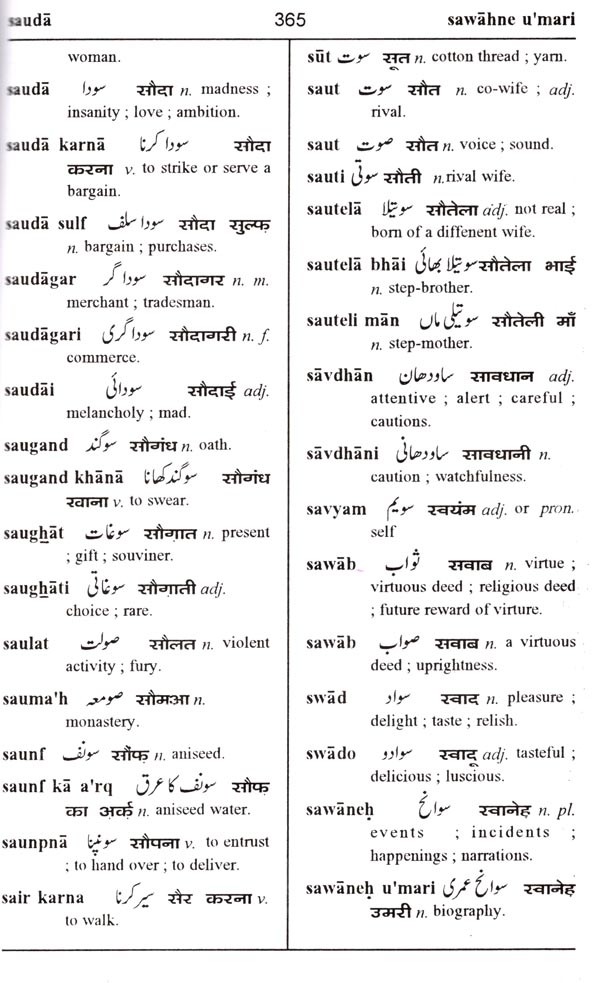 saudā 365 sawāhne u'mari
woman.
saudā سودا सौदा n. madness ;
insanity ; love ; ambition.
saudā karnā سودا کرنا सौदा
करना v. to strike or serve a
bargain.
saudā sulf سودا سلف सौदा सुल्फ़
n. bargain ; purchases.
saudāgar سودا گر सौदागर n. m.
merchant ; tradesman.
saudāgari سودا گری सौदागरी n. f.
commerce.
saudāi سودائی सौदाई adj.
melancholy ; mad.
saugand سوگند सौगंध n. oath.
saugand khānā سوگند کھانا सौगंध
खाना v. to swear.
saughāt سوغات सौग़ात n. present
; gift ; souviner.
saughāti سوغاتی सौग़ाती adj.
choice ; rare.
saulat صولت सौलत n. violent
activity ; fury.
sauma'h صومعہ सौमआ n.
monastery.
saunf سونف सौंफ़ n. aniseed.
saunf kā a'rq سونف کا عرق सौफ़
का अर्क़ n. aniseed water.
saunpnā سونپنا सौपना v. to entrust
; to hand over ; to deliver.
sair karna سیر کرنا सैर करना v.
to walk.
sūt سوت सूत n. cotton thread ; yarn.
saut سوت सौत n. co-wife ; adj.
rival.
saut صوت सौत n. voice ; sound.
sauti سوتی सौती n.rival wife.
sautelā سوتیلا सौतेला adj. not real ;
born of a diffenent wife.
sautelā bhāi سوتیلا بھائی सौतेला भाई
n. step-brother.
sauteli mān سوتیلی ماں सौतेली माँ
n. step-mother.
sāvdhān ساودھان सावधान adj.
attentive ; alert ; careful ;
cautions.
sāvdhāni ساودھانی सावधानी n.
caution ; watchfulness.
savyam سویم स्वयंम adj. or pron.
self
sawāb ثواب सवाब n. virtue ;
virtuous deed ; religious deed
; future reward of virture.
sawāb صواب सवाब n. a virtuous
deed ; uprightness.
swād سواد स्वाद n. pleasure ;
delight ; taste ; relish.
swādo سوادو स्वादू adj. tasteful ;
delicious ; luscious.
sawāneḥ سوانح स्वानेह n. pl.
events ; incidents ;
happenings ; narrations.
sawāneḥ u'mari سوانح عمری स्वानेह
उमरी n. biography.